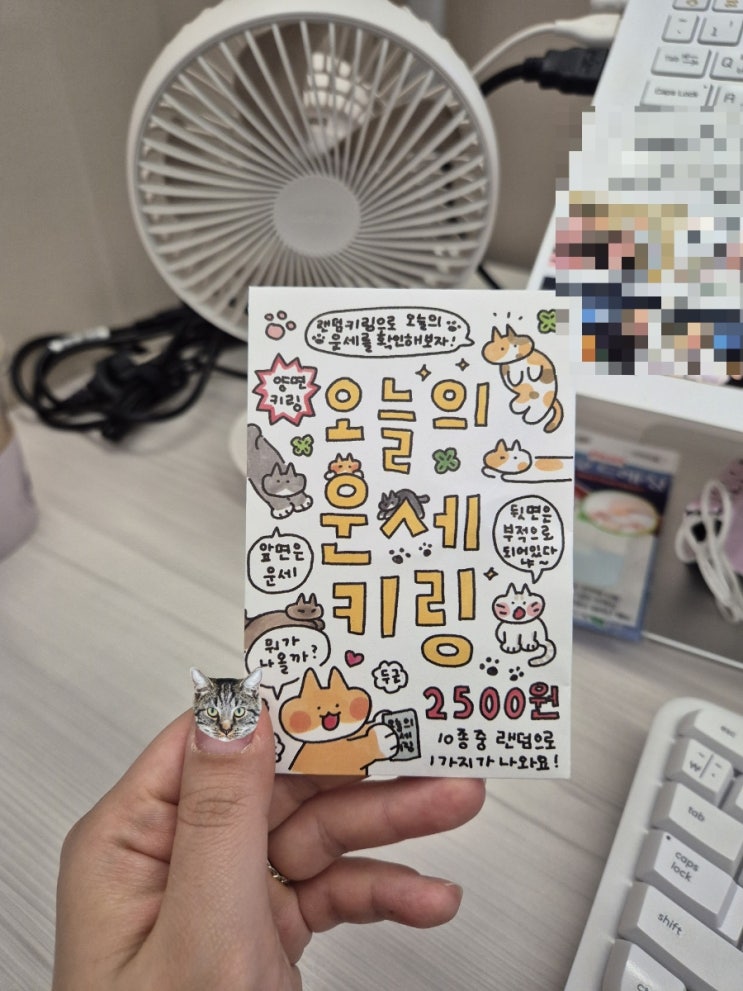 랜덤키링으로 오늘의
운세를 확인해보자!
양면
키링
오늘의
운세
키링
앞면은
운세
뒷면은
부적으로
되어있다
냐~
뭐가
나올까?
두근
오늘의
운세
키링
2500원
10종 중 랜덤으로
1가지가 나와요!
esc
W
tab
caps
lock
shift
Tab
Q
Caps Lock
A